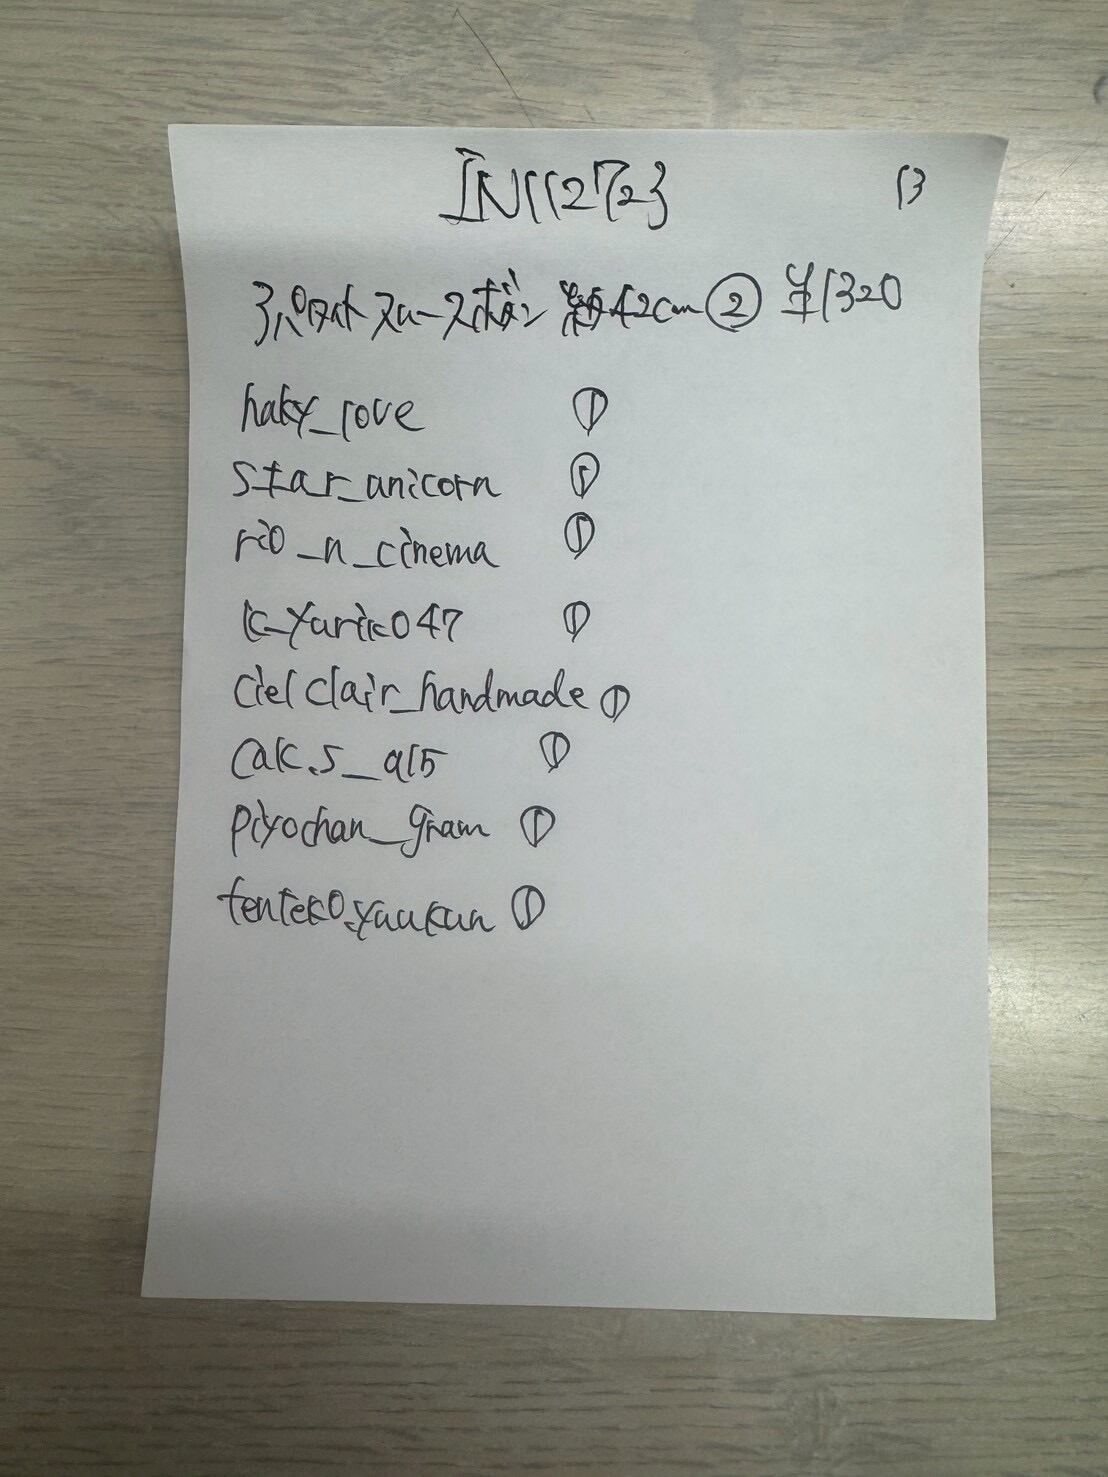 IN112723 13
42cm ② 1320
haky_love ①
star_unicorn ①
rio_n_cinema ①
k_yuriko47 ①
ciel clair_handmade ①
cak.s_a15 ①
piyochan_gram ①
tenteko.yuukun ①